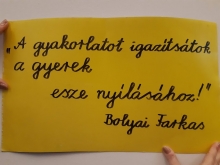 „A gyakorlatot igazítsátok
a gyerek
esze nyílásához!"
Bolyai Farkas